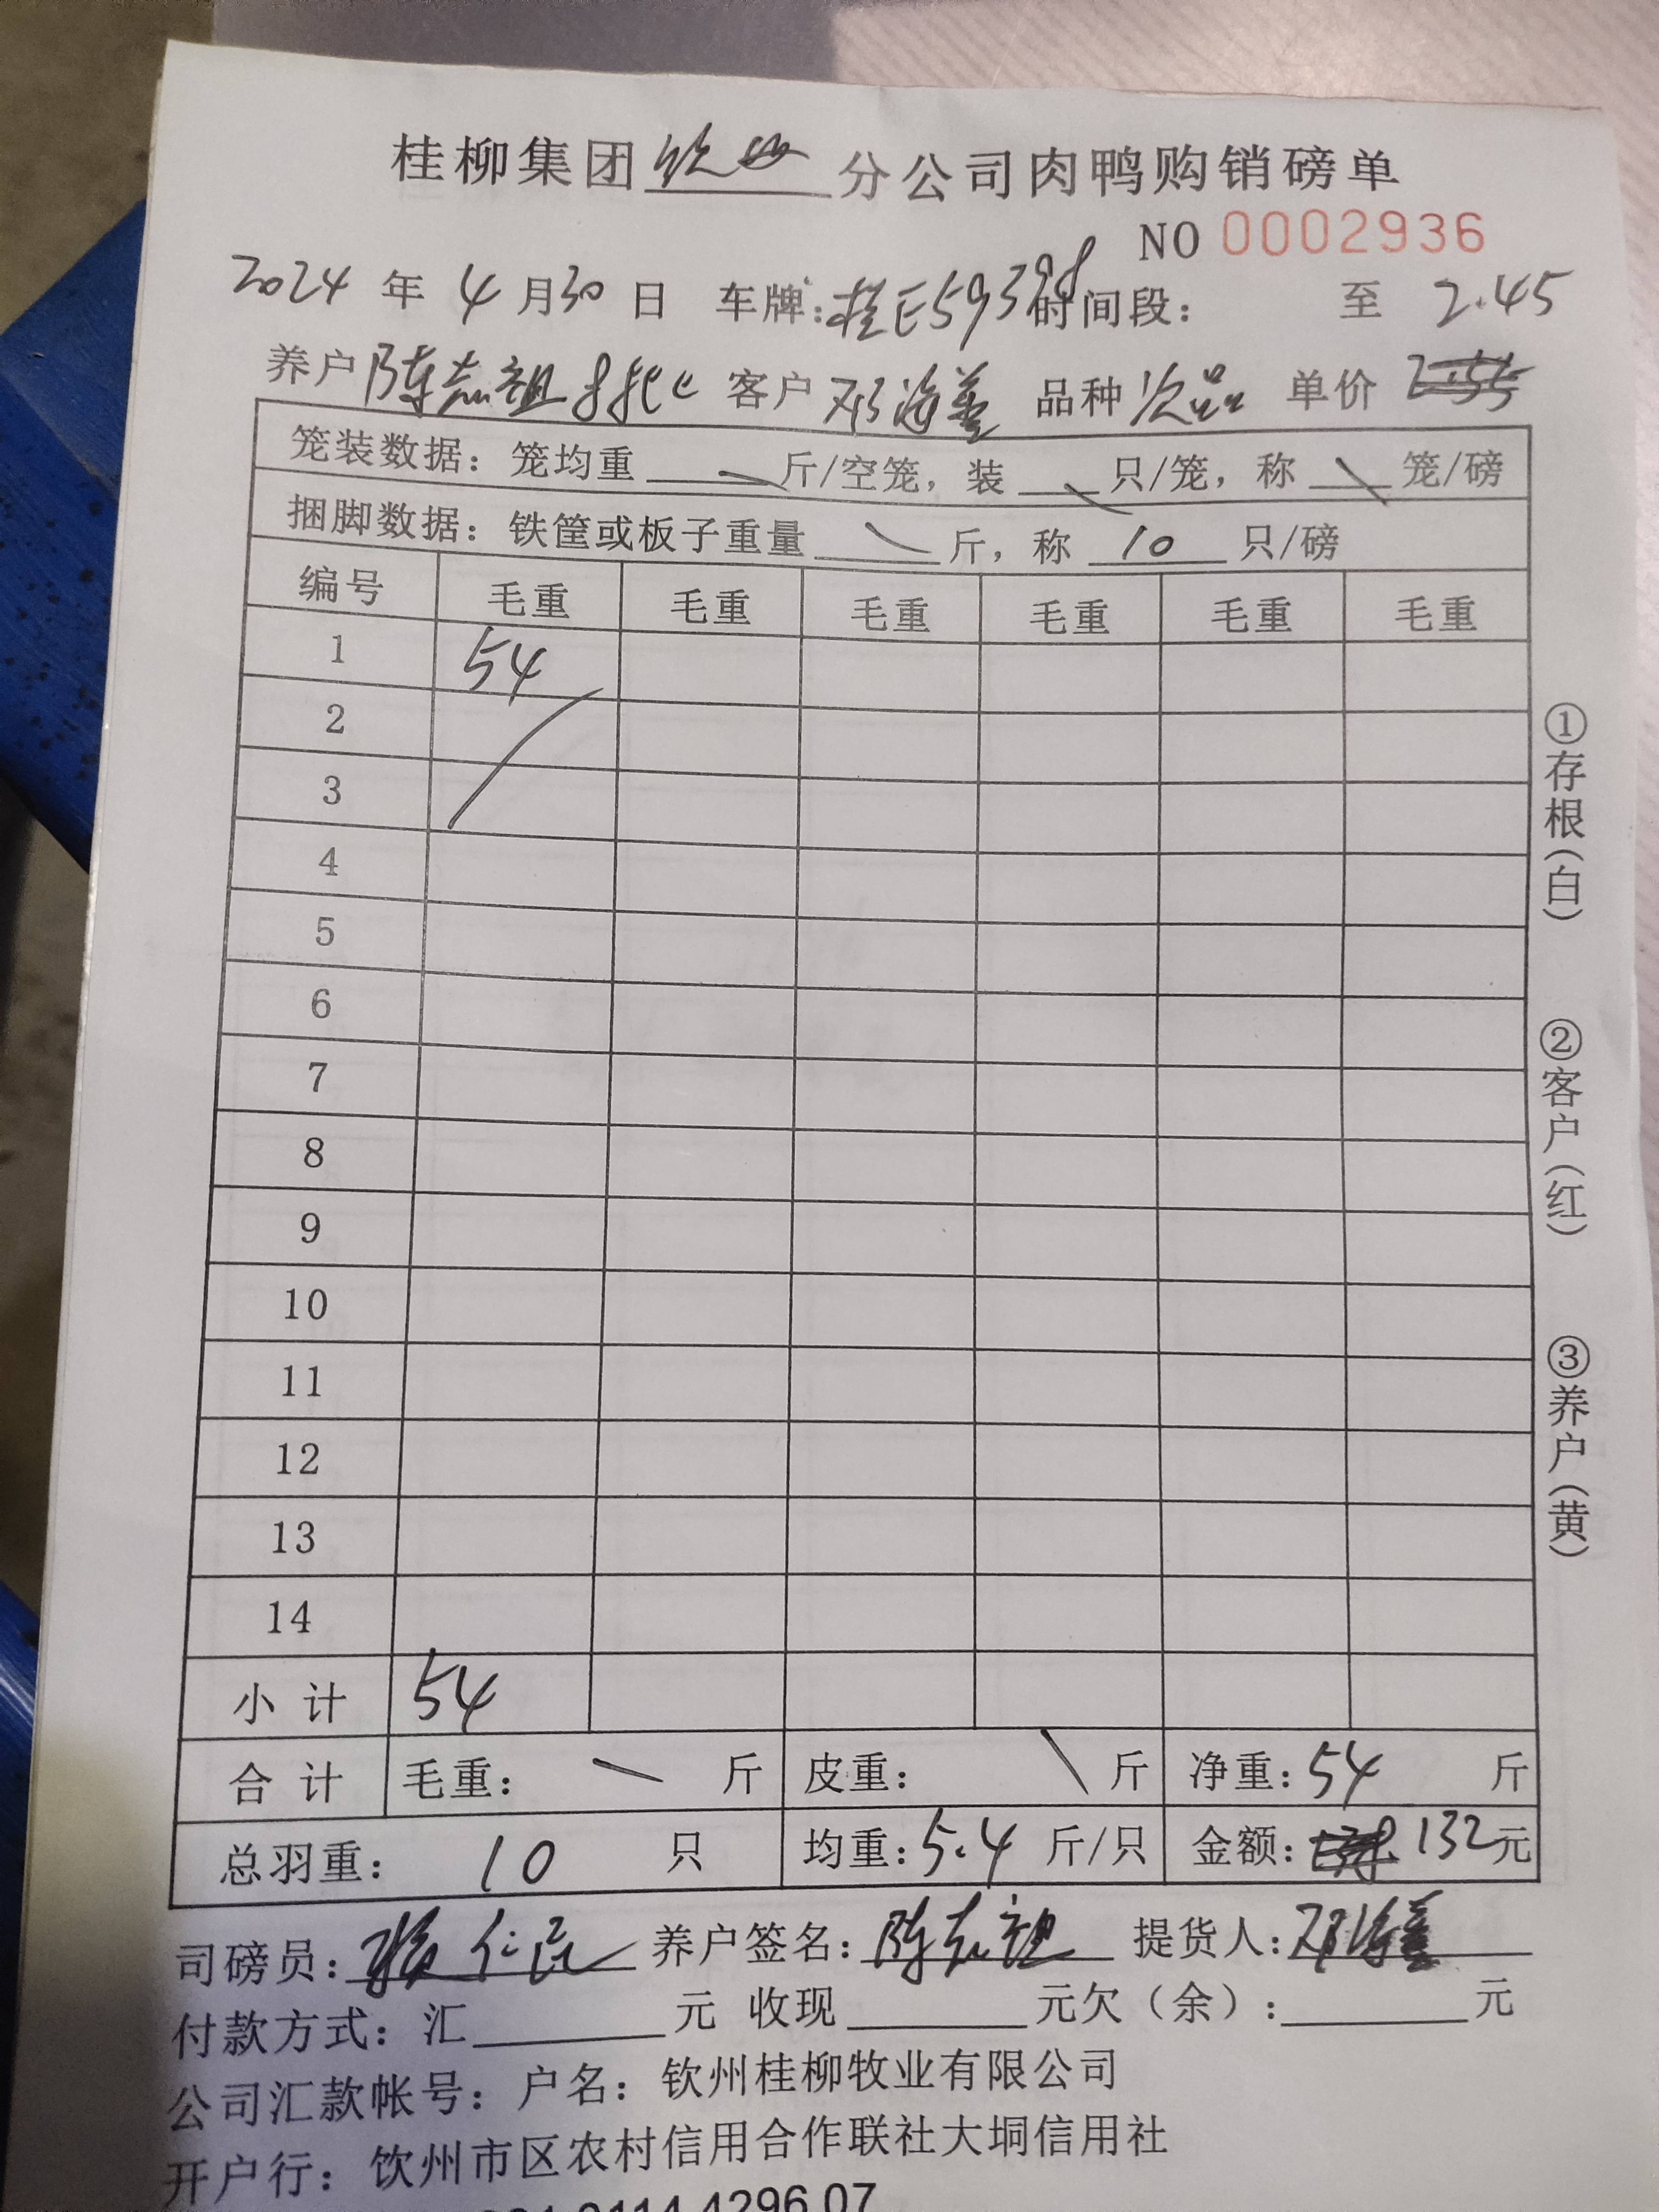 桂柳集团钦州分公司肉鸭购销磅单
NO 0002936
2024 年 4 月 30 日 车牌：桂E59398 时间段： 至 2.45
养户 陈志祖 客户 邓海 品种 次品 单价
笼装数据：笼均重 斤/空笼，装 只/笼，称 笼/磅
捆脚数据：铁筐或板子重量 斤，称 10 只/磅
编号 毛重 毛重 毛重 毛重 毛重 毛重
1 54
2
3
4
5
6
7
8
9
10
11
12
13
14
小 计 54
合 计 毛重： 斤 皮重： 斤 净重：54 斤
总羽重： 10 只 均重：5.4 斤/只 金额： 132元
司磅员： 养户签名：陈志祖 提货人：邓海
付款方式：汇 元 收现 元欠（余）： 元
公司汇款帐号：户名：钦州桂柳牧业有限公司
开户行：钦州市区农村信用合作联社大垌信用社
①存根（白）
②客户（红）
③养户（黄）